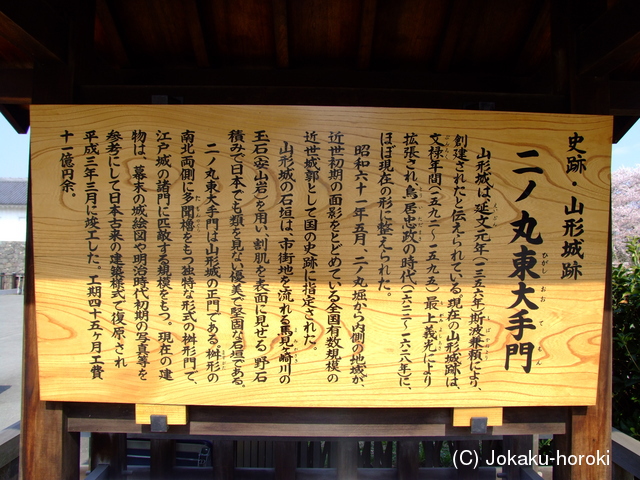 史跡・山形城跡
二ノ丸東大手門
ひがし おお て もん
山形城は、延文元年(一三五六年)斯波兼頼により、
創建されたと伝えられている。現在の山形城跡は、
文禄年間(一五九二〜一五九五)最上義光により
拡張され鳥居忠政の時代(一六二二〜一六二八年)に、
ほぼ現在の形に整えられた。
昭和六十一年五月、二ノ丸堀から内側の地域が、
近世初期の面影をとどめている全国有数規模の
近世城郭として国の史跡に指定された。
山形城の石垣は、市街地を流れる馬見ヶ崎川の
玉石(安山岩)を用い、割肌を表面に見せる、野石
積みで日本でも類を見ない優美で堅固な石垣である。
二ノ丸東大手門は山形城の正門である。桝形の
南北両側に多聞櫓をもつ独特な形式の桝形門で、
江戸城の諸門に匹敵する規模をもつ。現在の建
物は、幕末の城絵図や明治時代初期の写真等を
参考にして日本古来の建築様式で復原され
平成三年三月に竣工した。工期四十五ヶ月工費
十一億円余。
(C) Jokaku-horoki